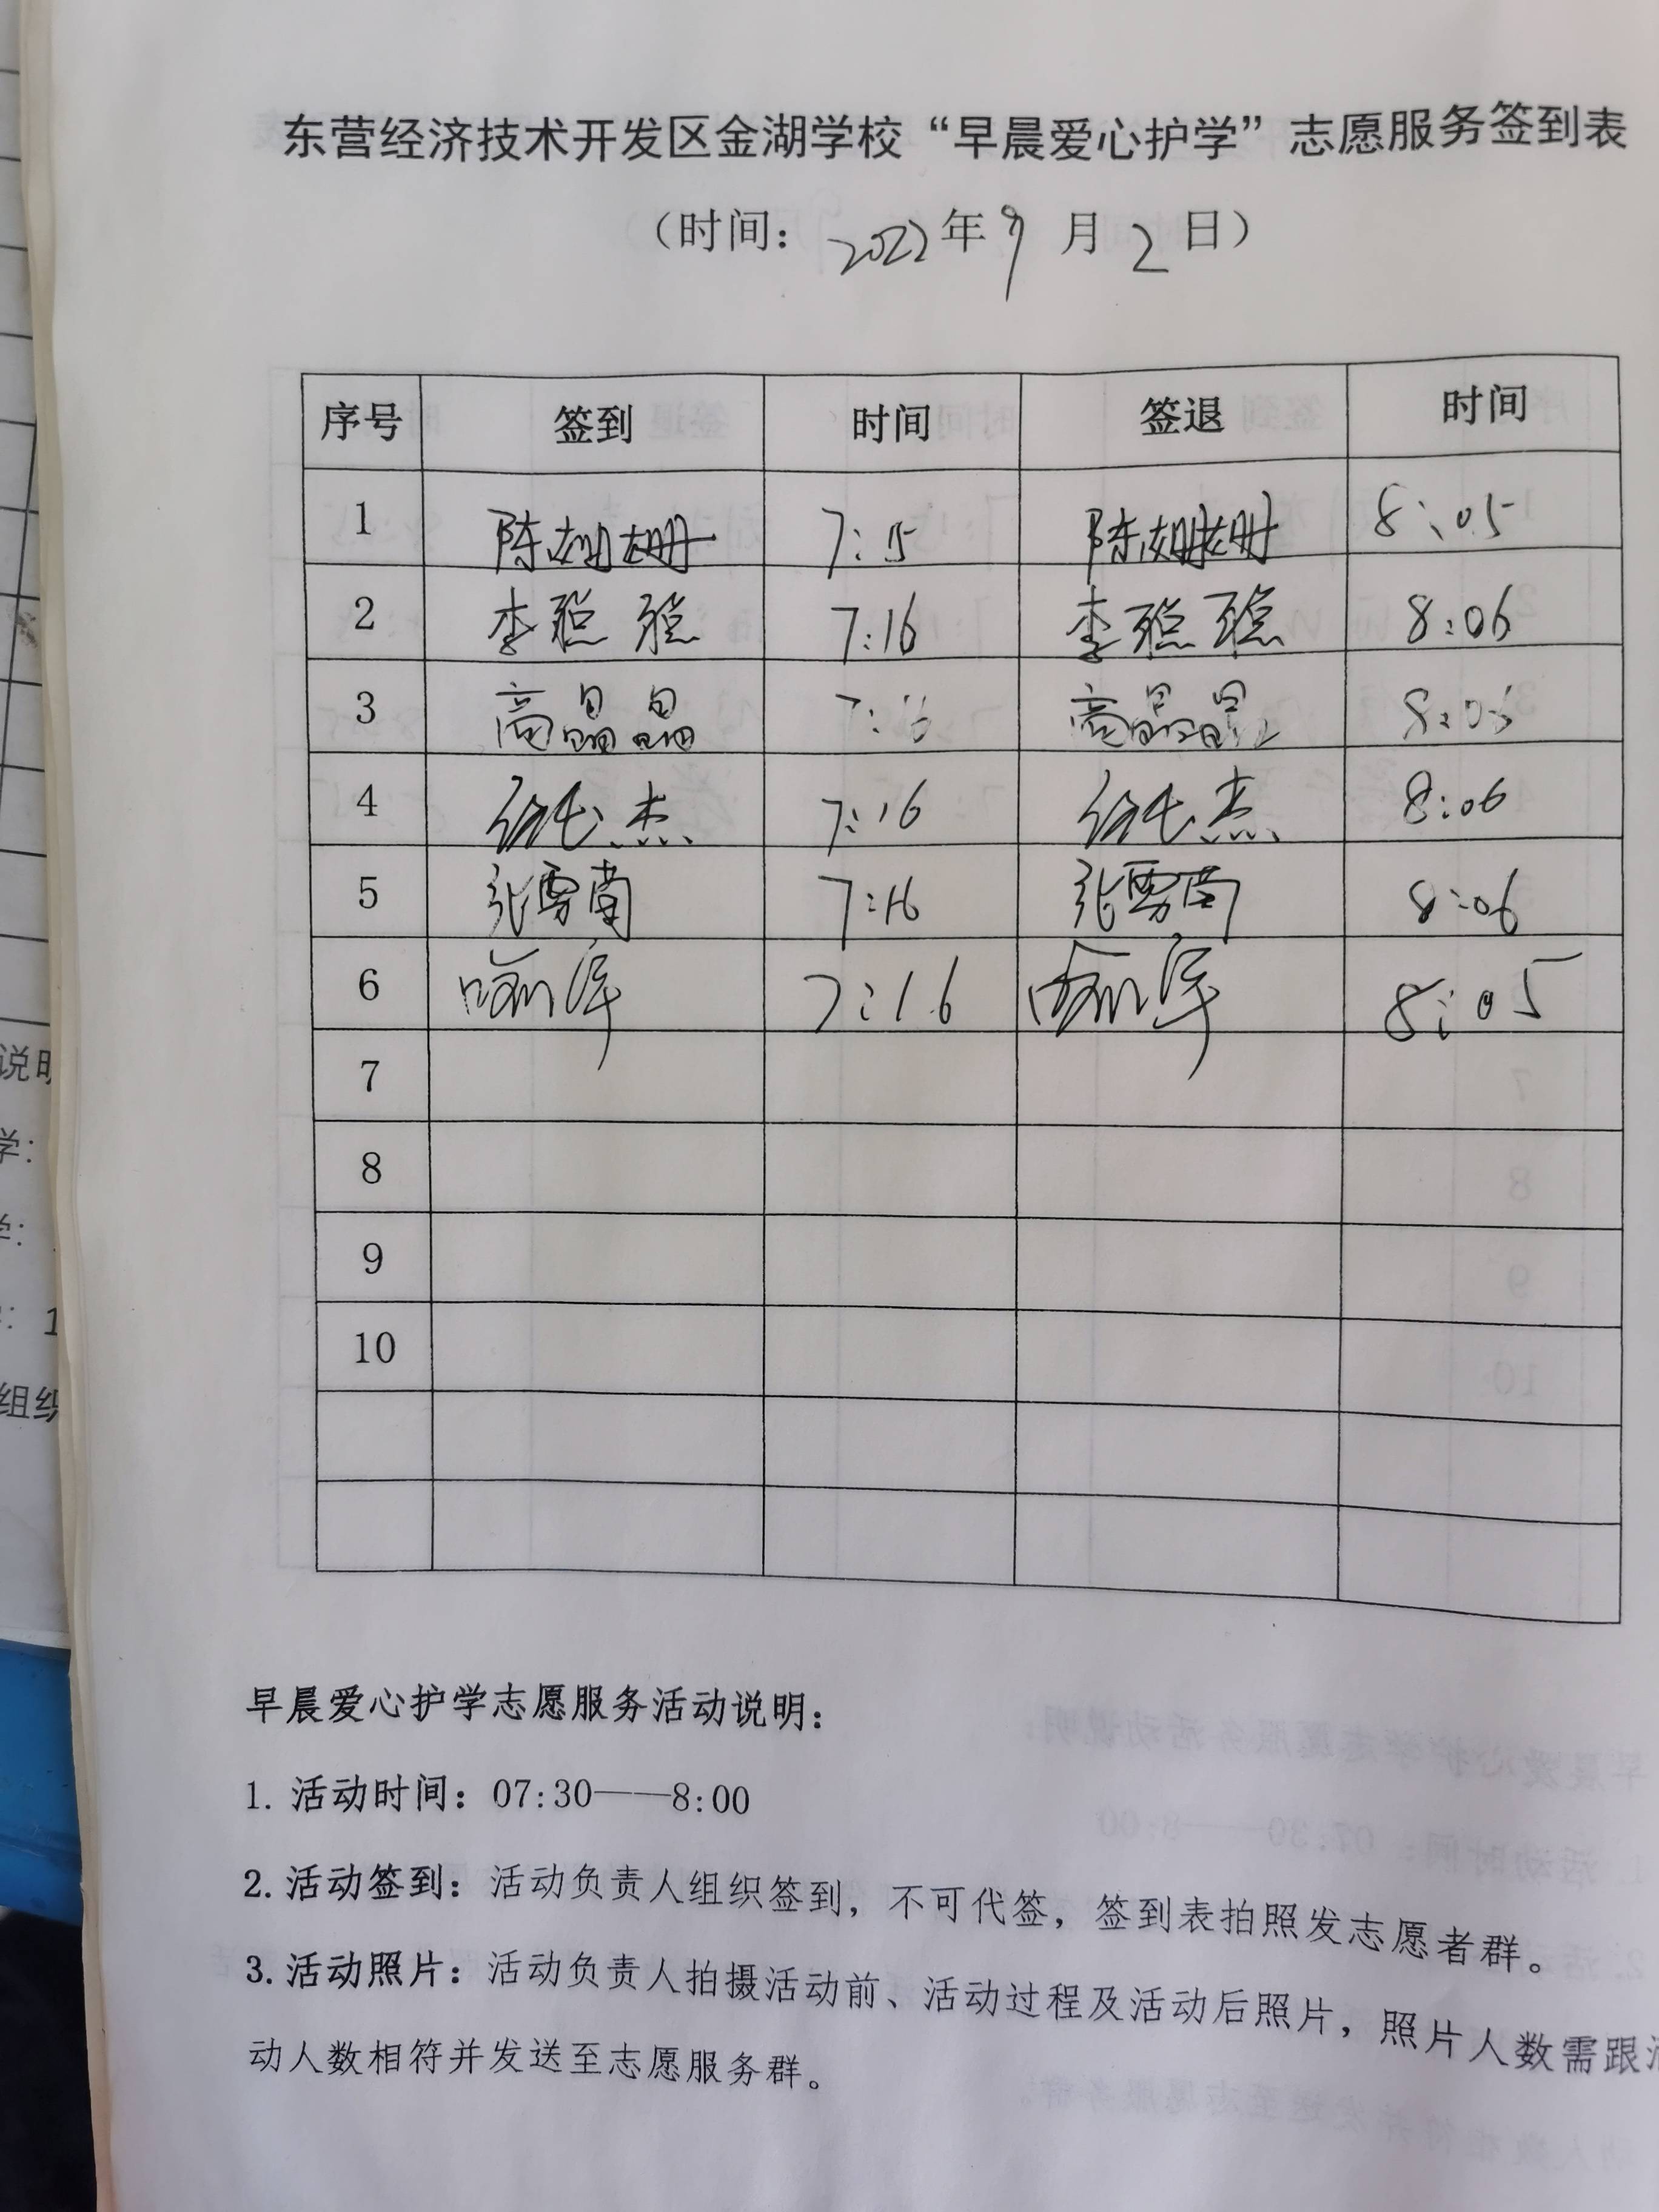 东营经济技术开发区金湖学校“早晨爱心护学”志愿服务签到表
（时间：2022年9月2日）
序号 签到 时间 签退 时间
1 陈姗姗 7:15 陈姗姗 8:05
2 李聪聪 7:16 李聪聪 8:06
3 高晶晶 高晶晶
4 杰 7:16 杰 8:06
5 张雪南 7:16 张雪南 8:06
6 7:16 8:05
7
8
9
10
早晨爱心护学志愿服务活动说明：
1. 活动时间：07:30——8:00
2. 活动签到：活动负责人组织签到，不可代签，签到表拍照发志愿者群。
3. 活动照片：活动负责人拍摄活动前、活动过程及活动后照片，照片人数需跟活
动人数相符并发送至志愿服务群。
说明
学：
学：
：1
组织